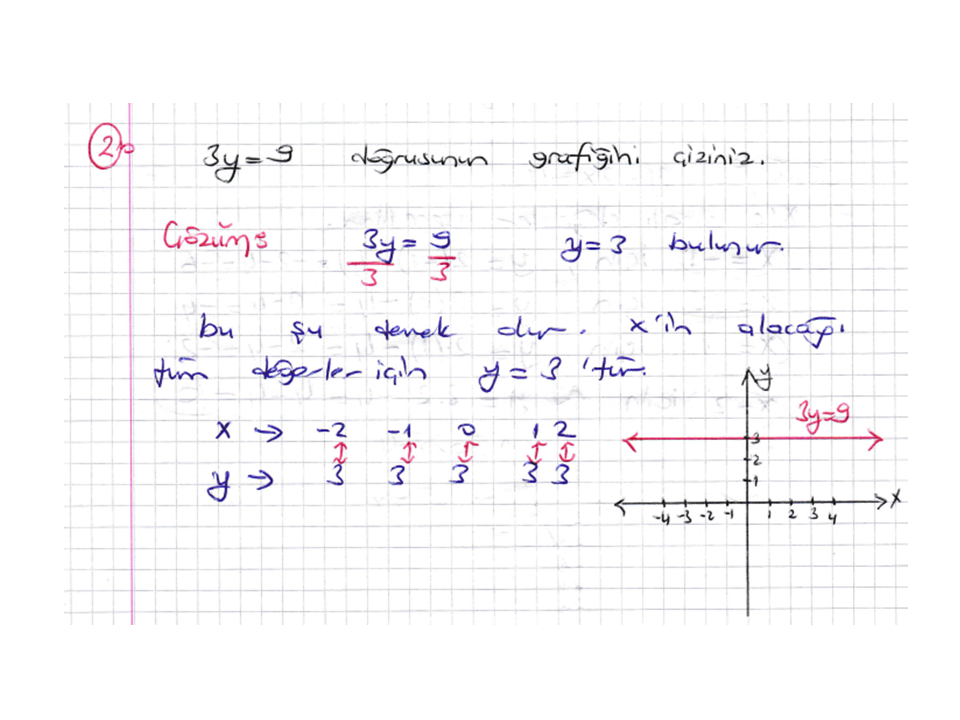 2) 3y=9 doğrusunun grafiğini çiziniz.
Çözüm: 3y/3 = 9/3 y=3 bulunur.
bu şu demek olur. x'in alacağı
tüm değerler için y = 3 'tür.
x → -2 -1 0 1 2
y → 3 3 3 3 3
y
3y=9
3
2
1
-4 -3 -2 -1 1 2 3 4 x